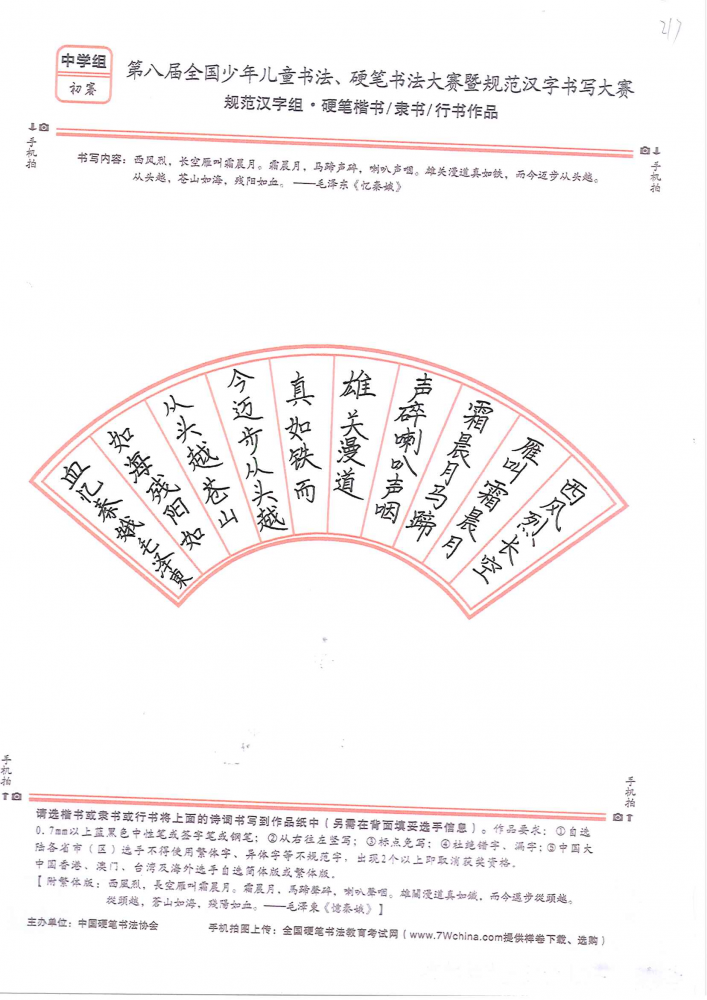 217
中学组
初赛
第八届全国少年儿童书法、硬笔书法大赛暨规范汉字书写大赛
规范汉字组·硬笔楷书/隶书/行书作品
手机拍
手机拍
书写内容：西风烈，长空雁叫霜晨月。霜晨月，马蹄声碎，喇叭声咽。雄关漫道真如铁，而今迈步从头越。
从头越，苍山如海，残阳如血。——毛泽东《忆秦娥》
西风烈长空
雁叫霜晨月
霜晨月马蹄
声碎喇叭声咽
雄关漫道
真如铁而
今迈步从头越
从头越苍山
如海残阳如
血忆秦娥毛泽東
手机拍
手机拍
请选楷书或隶书或行书将上面的诗词书写到作品纸中（另需在背面填妥选手信息）。作品要求：①自选
0.7mm以上蓝黑色中性笔或签字笔或钢笔；②从右往左竖写；③标点免写；④杜绝错字、漏字；⑤中国大
陆各省市（区）选手不得使用繁体字、异体字等不规范字，出现2个以上即取消获奖资格。
中国香港、澳门、台湾及海外选手自选简体版或繁体版。
【附繁体版：西風烈，長空雁叫霜晨月。霜晨月，馬蹄聲碎，喇叭聲咽。雄關漫道真如鐵，而今邁步從頭越。
從頭越，蒼山如海，殘陽如血。——毛澤東《憶秦娥》】
主办单位：中国硬笔书法协会
手机拍图上传：全国硬笔书法教育考试网（www.7Wchina.com提供样卷下载、选购）